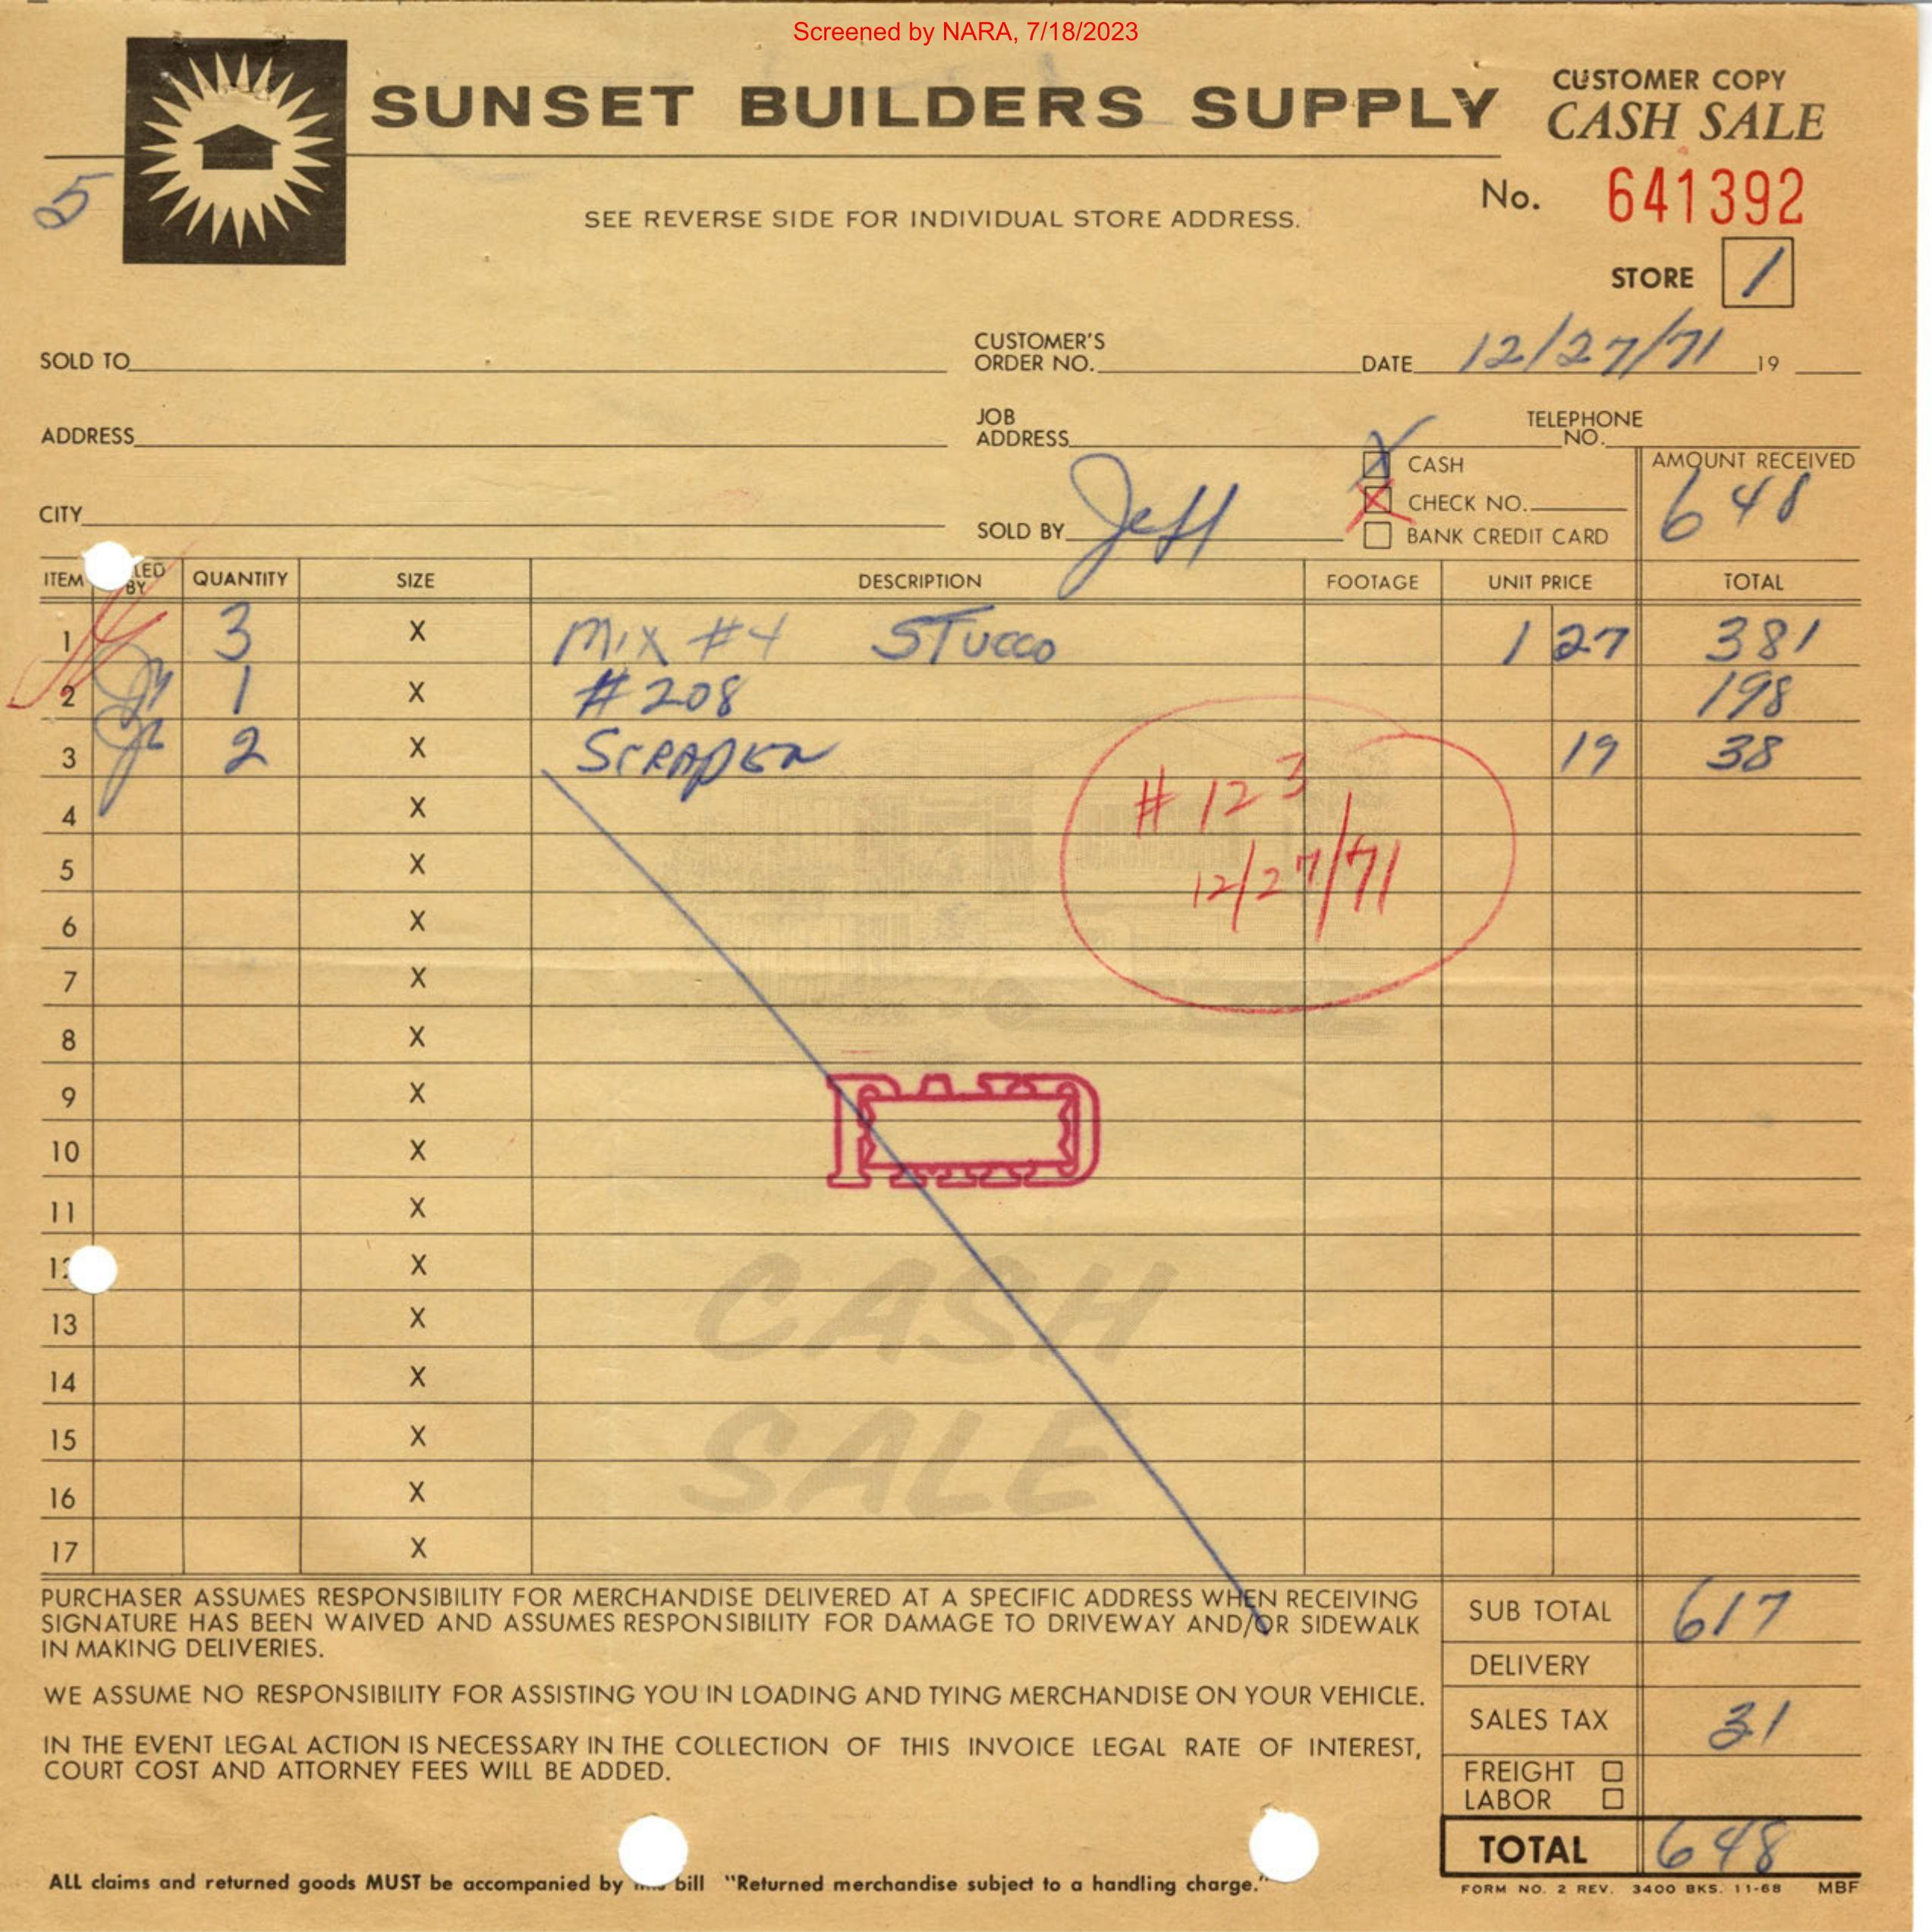 Screened by NARA, 7/18/2023
SUNSET BUILDERS SUPPLY
CUSTOMER COPY
CASH SALE
5
No. 641392
SEE REVERSE SIDE FOR INDIVIDUAL STORE ADDRESS.
STORE 1
SOLD TO
CUSTOMER'S ORDER NO.
DATE 12/27/71 19
ADDRESS
JOB ADDRESS
TELEPHONE NO.
X CASH
AMOUNT RECEIVED
X CHECK NO.
648
CITY
SOLD BY Jeff
BANK CREDIT CARD
ITEM LED BY QUANTITY SIZE DESCRIPTION FOOTAGE UNIT PRICE TOTAL
1 3 X MIX #4 STUCCO 1 27 381
2 1 X #208 198
3 2 X SCRAPER 19 38
4 X
# 123
5 X
12/27/71
6 X
7 X
8 X
9 X
PAID
10 X
11 X
12 X
13 X
CASH
14 X
15 X
SALE
16 X
17 X
PURCHASER ASSUMES RESPONSIBILITY FOR MERCHANDISE DELIVERED AT A SPECIFIC ADDRESS WHEN RECEIVING
SIGNATURE HAS BEEN WAIVED AND ASSUMES RESPONSIBILITY FOR DAMAGE TO DRIVEWAY AND/OR SIDEWALK
IN MAKING DELIVERIES.
WE ASSUME NO RESPONSIBILITY FOR ASSISTING YOU IN LOADING AND TYING MERCHANDISE ON YOUR VEHICLE.
IN THE EVENT LEGAL ACTION IS NECESSARY IN THE COLLECTION OF THIS INVOICE LEGAL RATE OF INTEREST,
COURT COST AND ATTORNEY FEES WILL BE ADDED.
SUB TOTAL 617
DELIVERY
SALES TAX 31
FREIGHT
LABOR
TOTAL 648
ALL claims and returned goods MUST be accompanied by bill "Returned merchandise subject to a handling charge."
FORM NO. 2 REV. 3400 BKS. 11-68 MBF